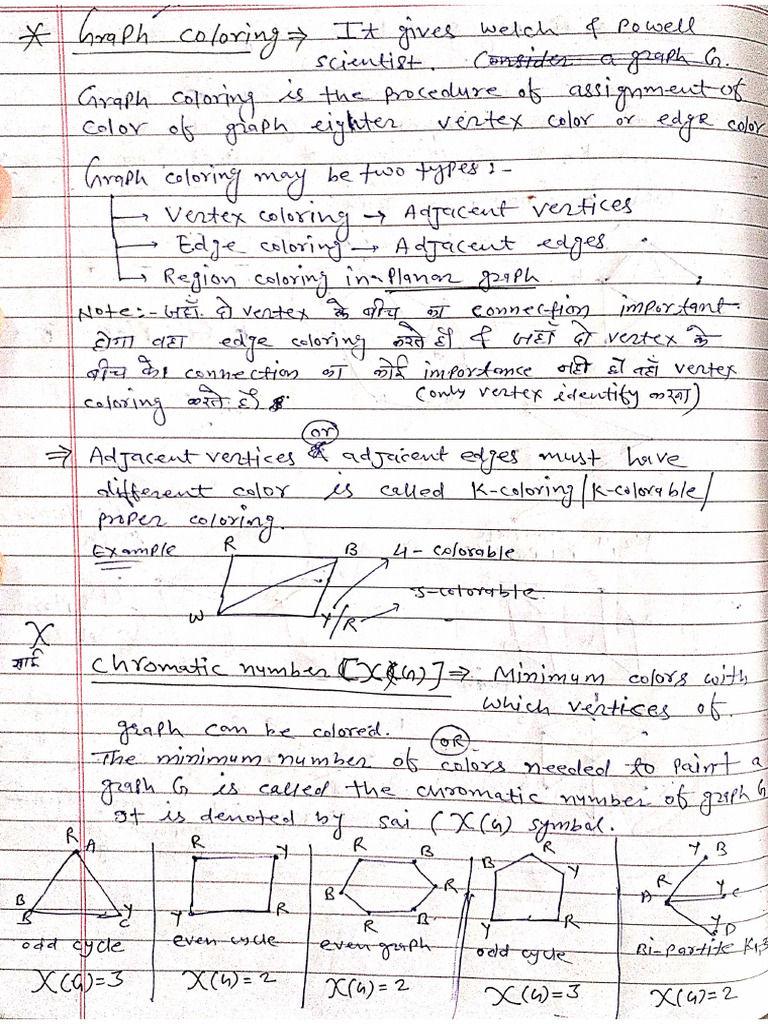 * Graph coloring ⇒ It gives welch & Powell
scientist. Consider a graph G.
Graph coloring is the procedure of assignment of
color of graph eighter vertex color or edge color
Graph coloring may be two types :-
→ Vertex coloring → Adjacent vertices
→ Edge coloring → Adjacent edges
→ Region coloring in a planar graph
Note:- जहाँ दो vertex के बीच का connection important
होगा वहा edge coloring करते हैं & जहाँ दो vertex के
बीच के connection का कोई importance नहीं हो वहाँ vertex
coloring करते हैं (only vertex identify करना)
or
⇒ Adjacent vertices & adjacent edges must have
different color is called K-coloring/K-colorable/
proper coloring.
Example R B 4-colorable
3-colorable
W Y/R
X
साई
Chromatic number [X(G)] ⇒ Minimum colors with
which vertices of
graph can be colored.
OR
The minimum number of colors needed to paint a
graph G is called the chromatic number of graph G
It is denoted by sai (X(G) symbol.
R A B B Y C
R Y Y R
R B B R R B
B R Y Y R
R A Y B Y C Y D
odd cycle even cycle even graph odd cycle Bi-partite K1,3
X(G)=3 X(G)=2 X(G)=2 X(G)=3 X(G)=2